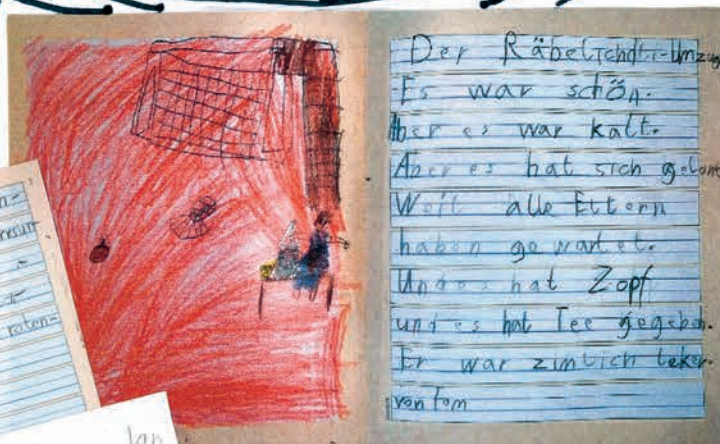 Der Räbeliechtli-Umzug
Es war schön.
Aber es war kalt.
Aber es hat sich gelont
Weil alle Eltern
haben gewartet.
Und es hat Zopf
und es hat Tee gegeben.
Er war zimlich leker.
von Tom
roten-
Jan